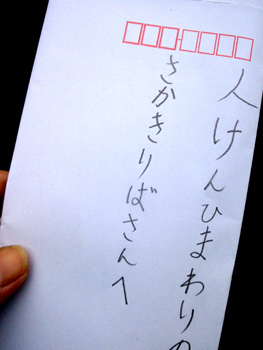 人けんひまわりの
さかきりばさんへ